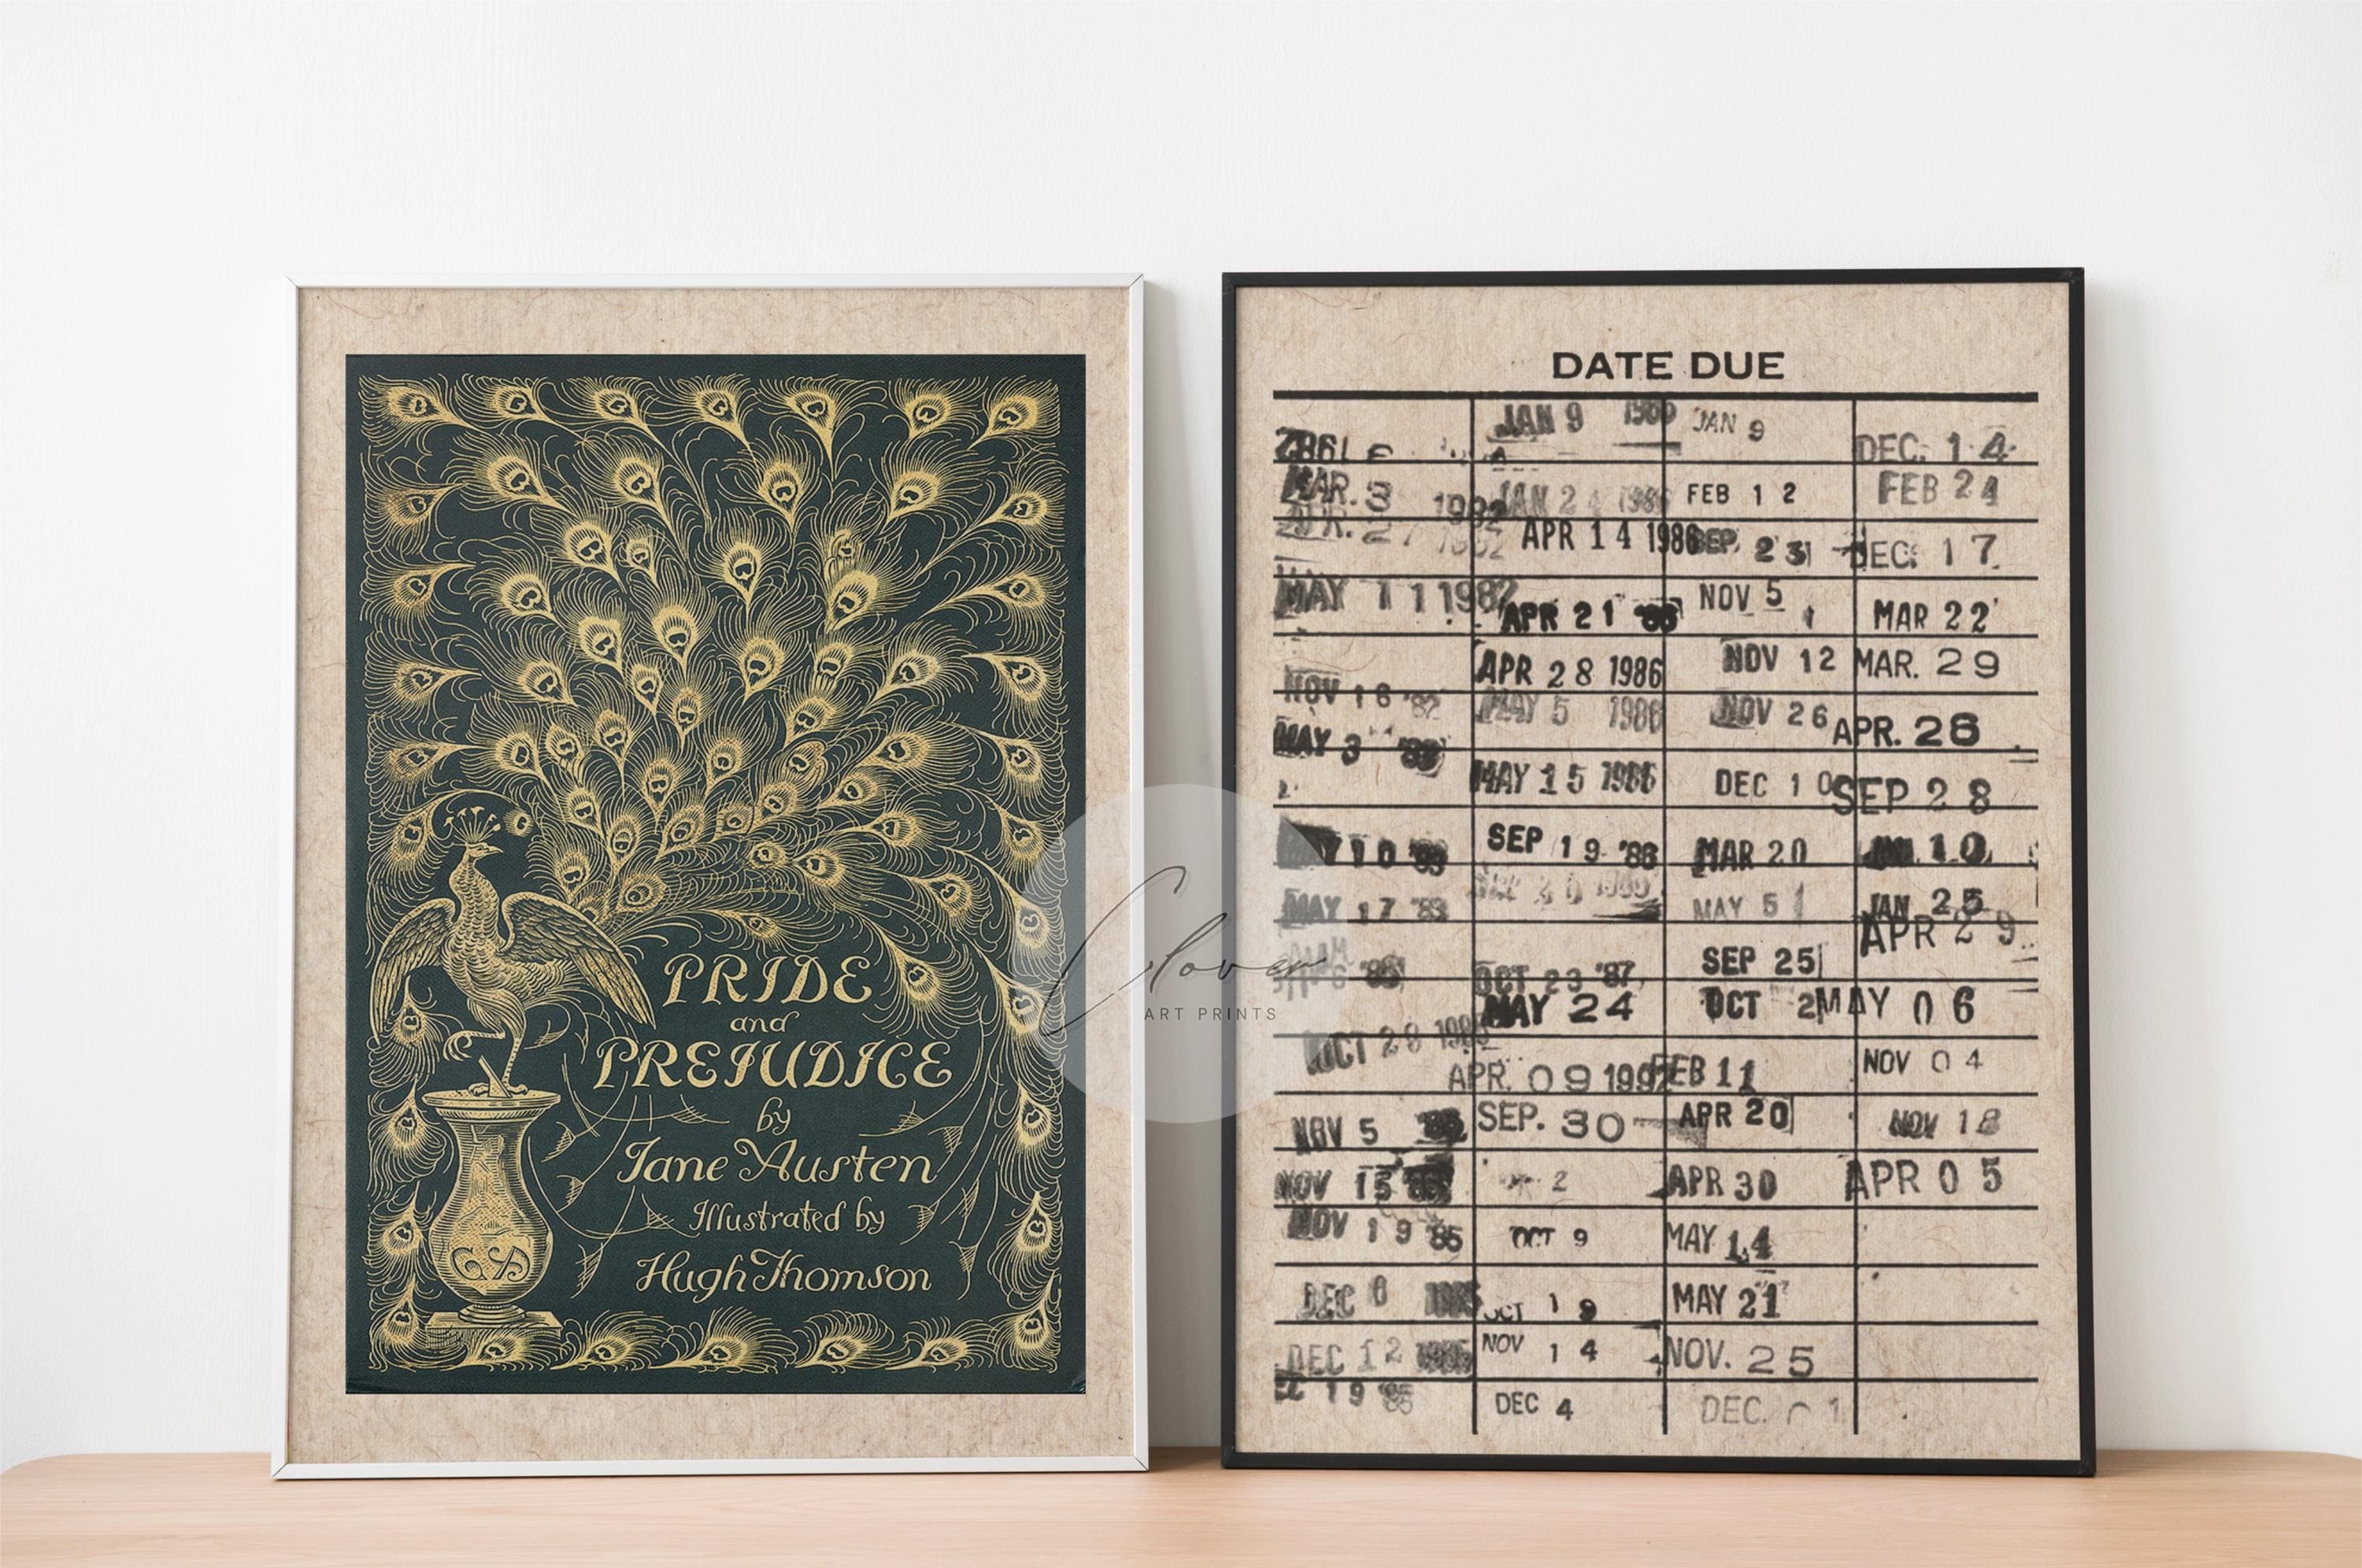 PRIDE
and
PREJUDICE
by
Jane Austen
Illustrated by
Hugh Thomson
GA
Clover
ART PRINTS
DATE DUE
MAR. 3 1982
MAY 11 1982
NOV 16 '82
MAY 3
MAY 17 '83
OCT 28
NOV 5
NOV 15
NOV 19 '85
DEC 6
DEC 12
19 '85
JAN 9
JAN 24 1986
APR 14 1986
APR 21
APR 28 1986
MAY 5 1986
MAY 15 1986
SEP 19 '86
OCT 23 '87
MAY 24
APR. 09 1992
SEP. 30
2
OCT 9
OCT 19
NOV 14
DEC 4
JAN 9
FEB 12
SEP 23
NOV 5
NOV 12
NOV 26
DEC 10
MAR 20
MAY 5
SEP 25
OCT 2
FEB 11
APR 20
APR 30
MAY 14
MAY 21
NOV. 25
DEC. 1
DEC. 14
FEB 24
DEC. 17
MAR 22
MAR. 29
APR. 26
SEP 28
10
JAN 25
APR 29
MAY 06
NOV 04
NOV 18
APR 05